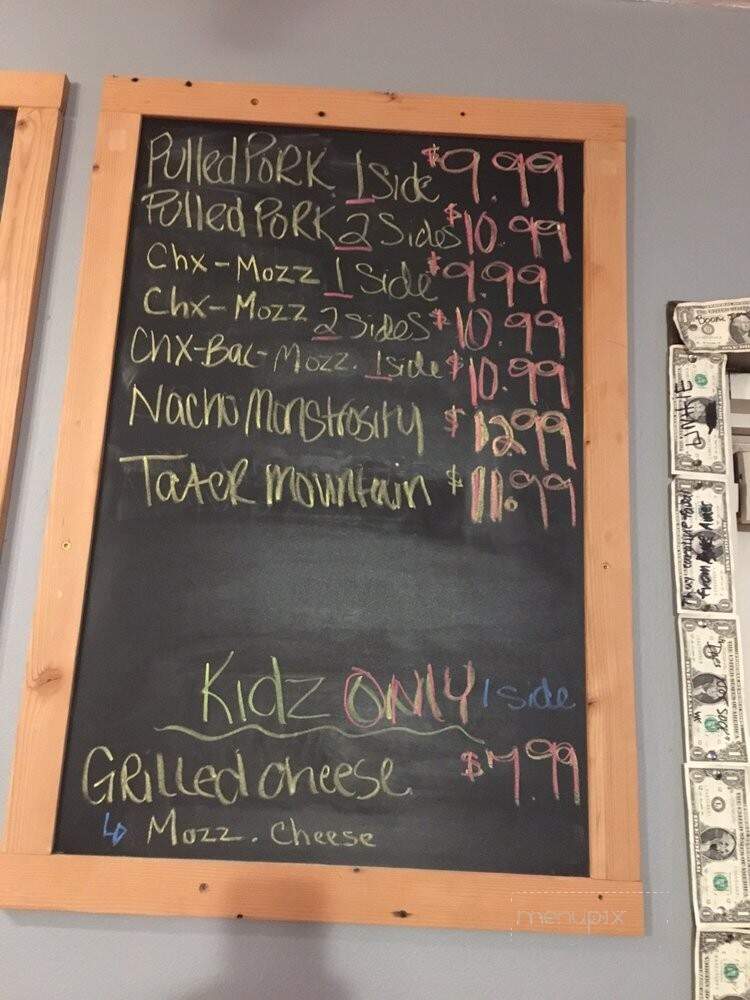 Pulled Pork 1 Side $9.99
Pulled Pork 2 Sides $10.99
Chx-Mozz 1 Side $9.99
Chx-Mozz 2 Sides $10.99
Chx-Bac-Mozz. 1 side $10.99
Nacho Monstrosity $12.99
Tater Mountain $11.99
Kidz ONLY 1 side
Grilled cheese $7.99
Mozz. Cheese
menupix